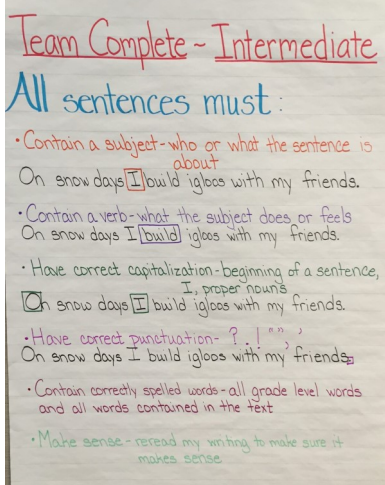 Team Complete ~ Intermediate
All sentences must:
• Contain a subject - who or what the sentence is
about
On snow days I build igloos with my friends.
• Contain a verb - what the subject does or feels
On snow days I build igloos with my friends.
• Have correct capitalization - beginning of a sentence,
I, proper nouns
On snow days I build igloos with my friends.
• Have correct punctuation - ? . ! " " , '
On snow days I build igloos with my friends.
• Contain correctly spelled words - all grade level words
and all words contained in the text
• Make sense - reread my writing to make sure it
makes sense